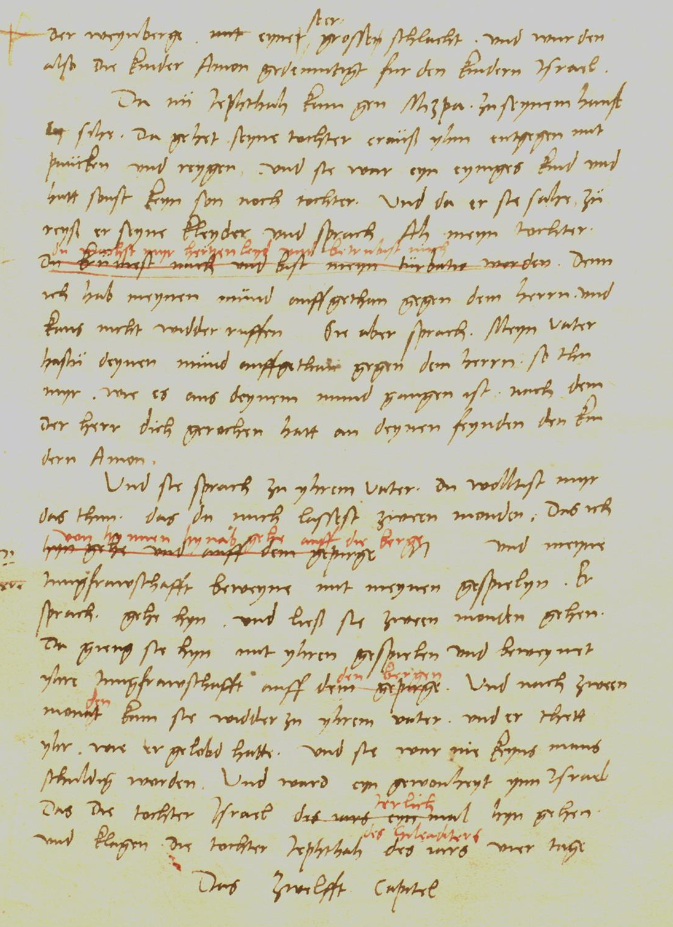 seer
der weynberge . mit eyner grossen schlacht . und wurden
also die kinder Amon gedemutigt fur den kindern Israel .
Da nu Jephthah kam gen Mizpa . zu seynem hauß
sihe . Da gehet . seyne tochter erauß yhm entgegen mit
paucken und reygen . und sie war eyn eyniges kind und
hatt sonst keyn son noch tochter . Und da er sie sahe . zu
reyß er seyne kleyder und sprach Ah meyn tochter .
du machst myr hertzenleyd und betrubst mich
Du mich und bist meyn turbatio worden . Denn
ich hab meynen mund auffgethan gegen dem herrn . und
kans nicht widderruffen Sie aber sprach . Meyn vater
hastu deynen mund auffgethan gegen dem herrn . so thu
myr . wie es aus deynem mund gangen ist . nach dem
der herr dich gerochen hatt an deynen feynden den kin
dern Amon .
Und sie sprach zu yhrem vater . du wolltist myr
das thun . das du mich lassest zween monden . Das ich
von hynnen hynab gehe auff die berge
hyn gehe und auff dem gepirge und meyne
Jungfrawschafft beweyne mit meynen gespielyn . Er
sprach . gehe hyn . und ließ sie zween monden gehen .
Da gieng sie hyn mit yhren gespielen und beweynet
den bergen
yhre Jungfrawschafft auff dem gepirge . Und nach zween
den
monat kam sie widder zu yhrem vater . und er thett
yhr . wie er gelobd hatte . und sie war nie keyns mans
schuldig worden . Und ward eyn gewonheyt ynn Israel
jerlich
Das die tochter Israel des iars eyn mal hyn gehen .
des Gileaditers
und klagen die tochter Jephthah des iars vier tage
Das Zwelfft Capitel